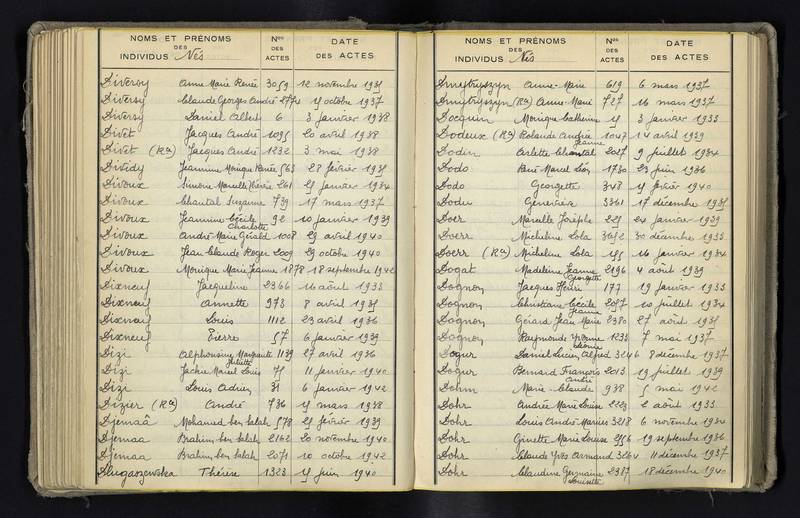 NOMS ET PRÉNOMS DES INDIVIDUS Nés | Nos DES ACTES | DATE DES ACTES
Diversy Anne Marie Renée 3059 12 novembre 1935
Diversy Claude Georges André 2774 15 octobre 1937
Diversy Daniel Albert 6 3 janvier 1938
Divet Jacques André 1095 20 avril 1938
Divet (Ron) Jacques André 1232 3 mai 1938
Dividy Jeannine Monique Renée 563 28 février 1935
Divoux Simone Marcelle Marie 261 25 janvier 1934
Divoux Chantal Suzanne 739 17 mars 1937
Divoux Jeannine Cécile Charlotte 92 10 janvier 1939
Divoux André Marie Gérald 1008 29 avril 1940
Divoux Jean Claude Roger 2009 29 octobre 1940
Divoux Monique Marie Jeanne 1878 18 septembre 1942
Dixneuf Jacqueline 2366 16 août 1933
Dixneuf Annette 973 8 avril 1935
Dixneuf Louis 1112 23 avril 1936
Dixneuf Pierre 57 6 janvier 1939
Dizi Alphonsine Marguerite Juliette 1139 27 avril 1936
Dizi Jackie Marcel Louis 75 11 janvier 1940
Dizi Louis Adrien 31 6 janvier 1942
Dizier André 736 15 mars 1938
Djemaâ Mohamed ben Salah 578 25 février 1939
Djemaa Brahim ben Salah 2162 20 novembre 1940
Djemaa Brahim ben Salah 2071 10 octobre 1942
Dlugaszewska Thérèse 1323 15 juin 1940
NOMS ET PRÉNOMS DES INDIVIDUS Nés | Nos DES ACTES | DATE DES ACTES
Dmytryszyn Anne-Marie 619 6 mars 1937
Dmytryszyn Anne-Marie 727 16 mars 1937
Docquin Monique Catherine 15 3 janvier 1933
Dodeux Rolande Andrée 1047 14 avril 1939
Dodin Arlette Chantal Jeanne 2027 9 juillet 1934
Dodo René Marcel Léon 1730 23 juin 1936
Dodo Georgette 348 15 février 1940
Dodu Geneviève 3361 17 décembre 1935
Doer Marcelle Josèphe 225 24 janvier 1939
Doerr Micheline Lola 3652 30 décembre 1933
Doerr Micheline Lola 155 16 janvier 1934
Dogat Madeleine Jeanne Georgette 2196 4 août 1939
Dognon Jacques Henri 177 19 janvier 1933
Dognon Christiane Cécile Jeanne 2057 10 juillet 1934
Dognon Gérard Jean Marie 2380 27 août 1935
Dognon Raymonde Yvonne Léonie 1233 7 mai 1937
Dogur Daniel Lucien Alfred 3246 8 décembre 1937
Dogur Bernard François André 2013 19 juillet 1939
Dohm Marie-Claude 938 5 mai 1942
Dohr Andrée Marie Louise 2223 2 août 1933
Dohr Louis André Marius 3218 6 novembre 1934
Dohr Ginette Marie Louise 2556 19 septembre 1936
Dohr Claude Yves Armand 3264 11 décembre 1937
Dohr Claudine Germaine Louisette 2387 18 décembre 1940